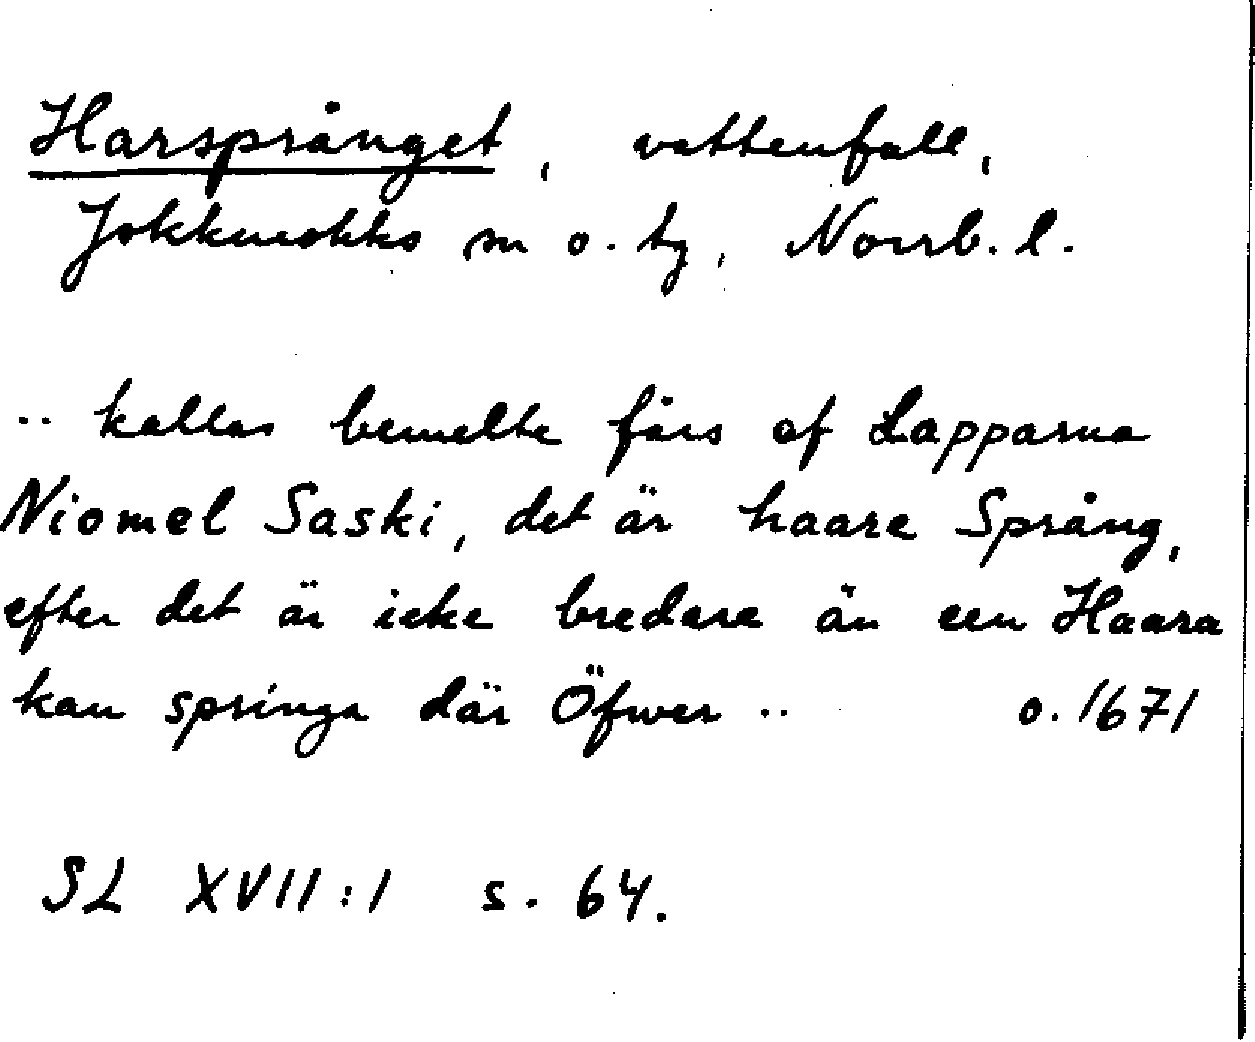 Harsprånget, vattenfall,
Jokkmokks sn o. tg, Norrb. l.
.. kallas bemelte fårs af Lapparna
Niomel Saski, det är haare Språng,
efter det är icke bredare än een Haara
kan springa där Öfwer .. o. 1671
SL XVII:1 s. 64.